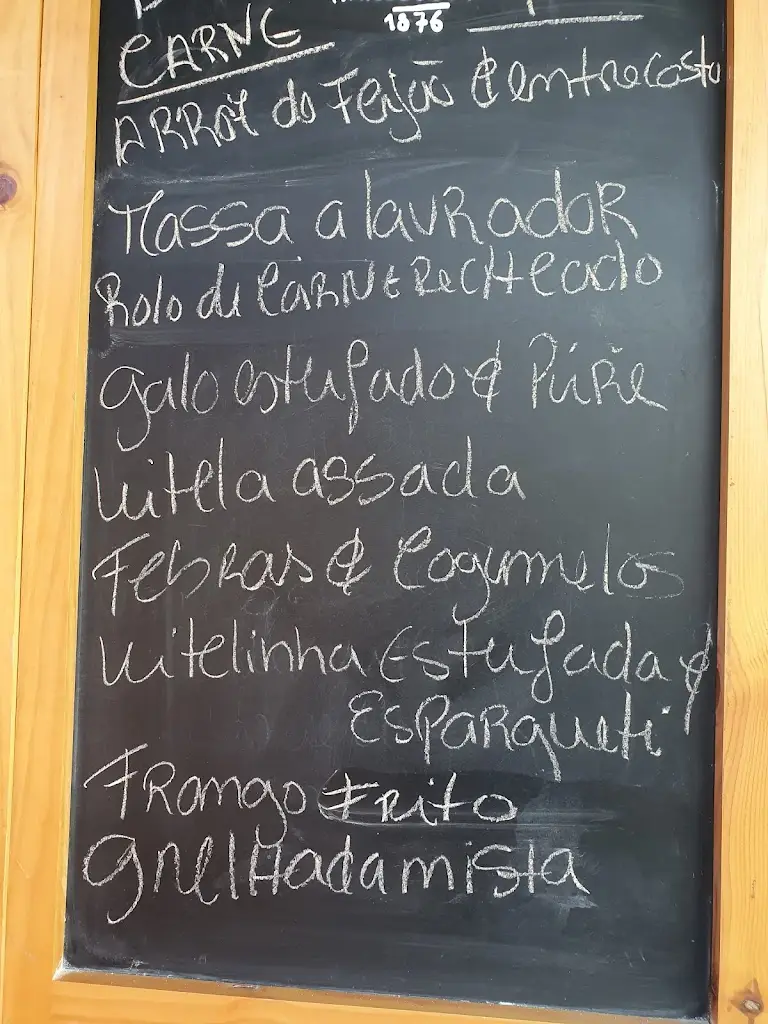 1876
CARNE
ARROZ do Feijão ¢ entrecosto
Massa a lavRadoR
Rolo de CARNE RecHeado
galo estufado ¢ Púrě
vitela assada
FebRas ¢ Cogumelos
vitelinha Estufada ¢
EsPARqueti
FRango FRito
gRelHada mista